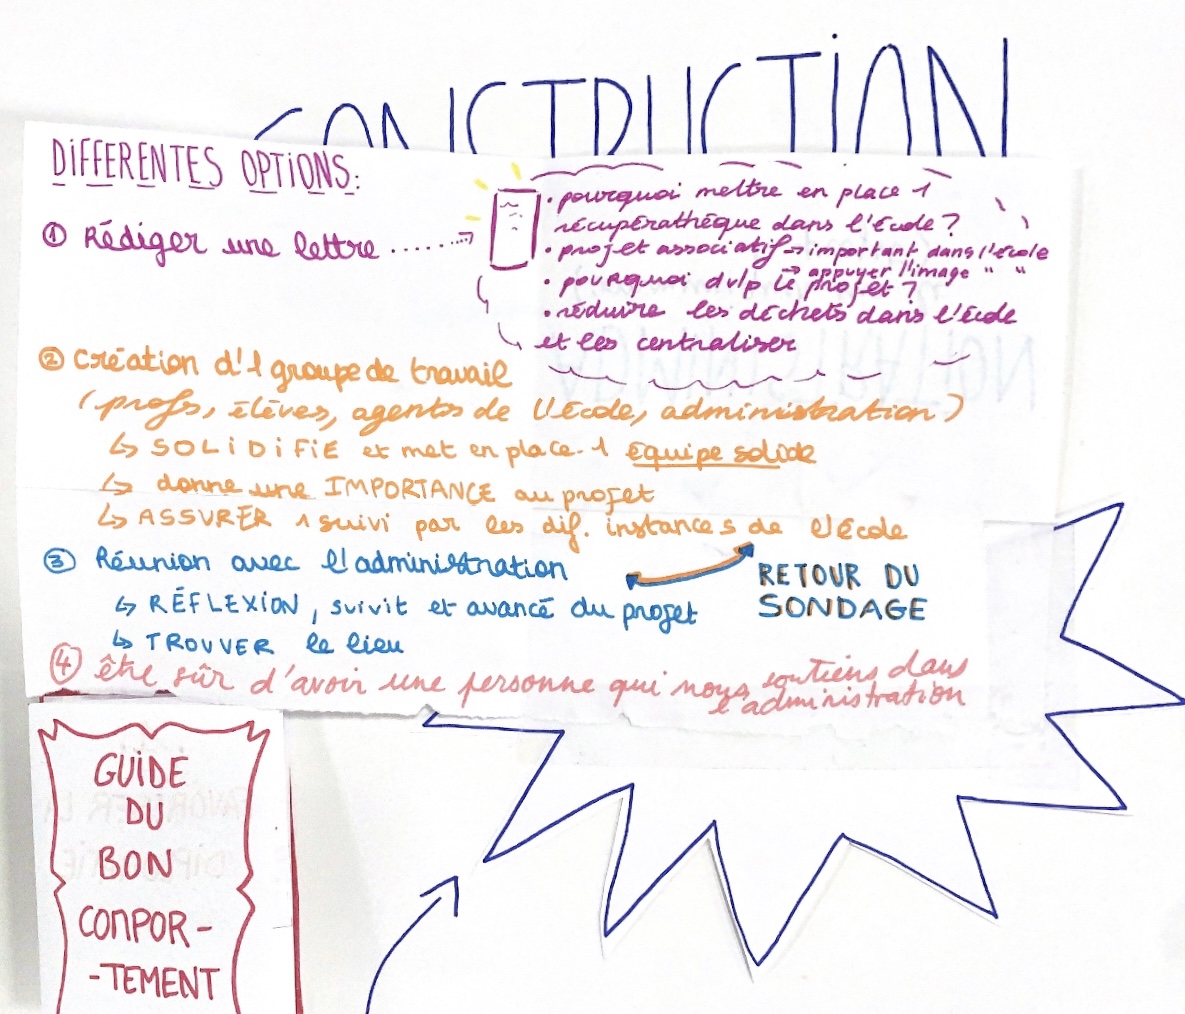 CONSTRUCTION
DiFFERENTES OPTiONS:
① Rédiger une lettre ........
• pourquoi mettre en place 1
récupérathèque dans l'école ?
• projet associatif → important dans l'école
→ appuyer l'image " "
• pourquoi dvlp le projet ?
• réduire les déchets dans l'école
et les centraliser
② Création d'1 groupe de travail
(profs, élèves, agents de l'école, administration)
↳ SOLiDiFiE et met en place 1 équipe solide
↳ donne une IMPORTANCE au projet
↳ ASSURER 1 suivi par les dif. instances de l'école
③ Réunion avec l'administration
↳ RÉFLEXiON, suivit et avancé du projet
↳ TROUVER le lieu
RETOUR DU
SONDAGE
④ être sûr d'avoir une personne qui nous soutiens dans
l'administration
GUiDE
DU
BON
CONPOR-
-TEMENT